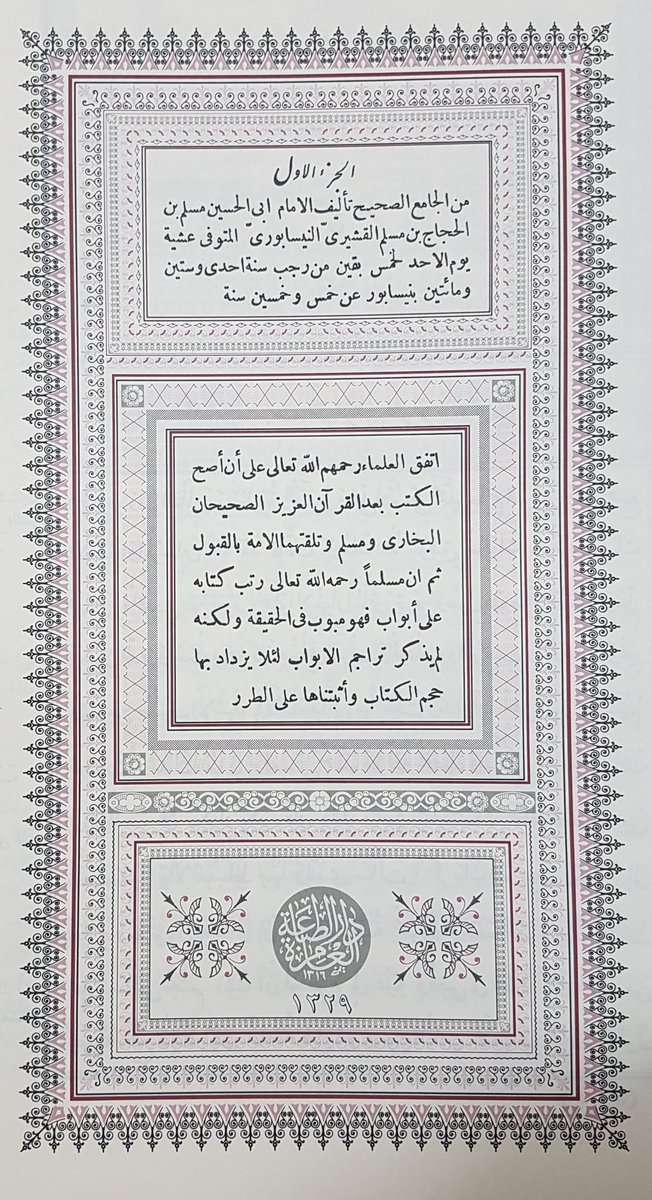 الجزء الاول
من الجامع الصحيح تأليف الامام ابى الحسين مسلم بن
الحجاج بن مسلم القشيرىّ النيسابورىّ المتوفى عشية
يوم الاحد لخمس بقين من رجب سنة احدى وستين
ومائتين بنيسابور عن خمس وخمسين سنة
اتفق العلماء رحمهم الله تعالى على أن أصح
الكتب بعد القرآن العزيز الصحيحان
البخارى ومسلم وتلقتهما الامة بالقبول
ثم ان مسلماً رحمه الله تعالى رتب كتابه
على أبواب فهو مبوب فى الحقيقة ولكنه
لم يذكر تراجم الابواب لئلا يزداد بها
حجم الكتاب وأثبتناها على الطرر
دار الطباعة
العامرة
١٣١٦
١٣٢٩